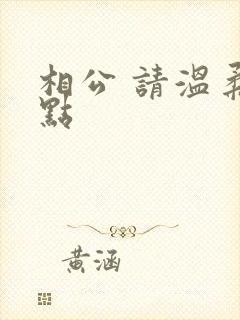 相公 請溫柔
點
黃涵